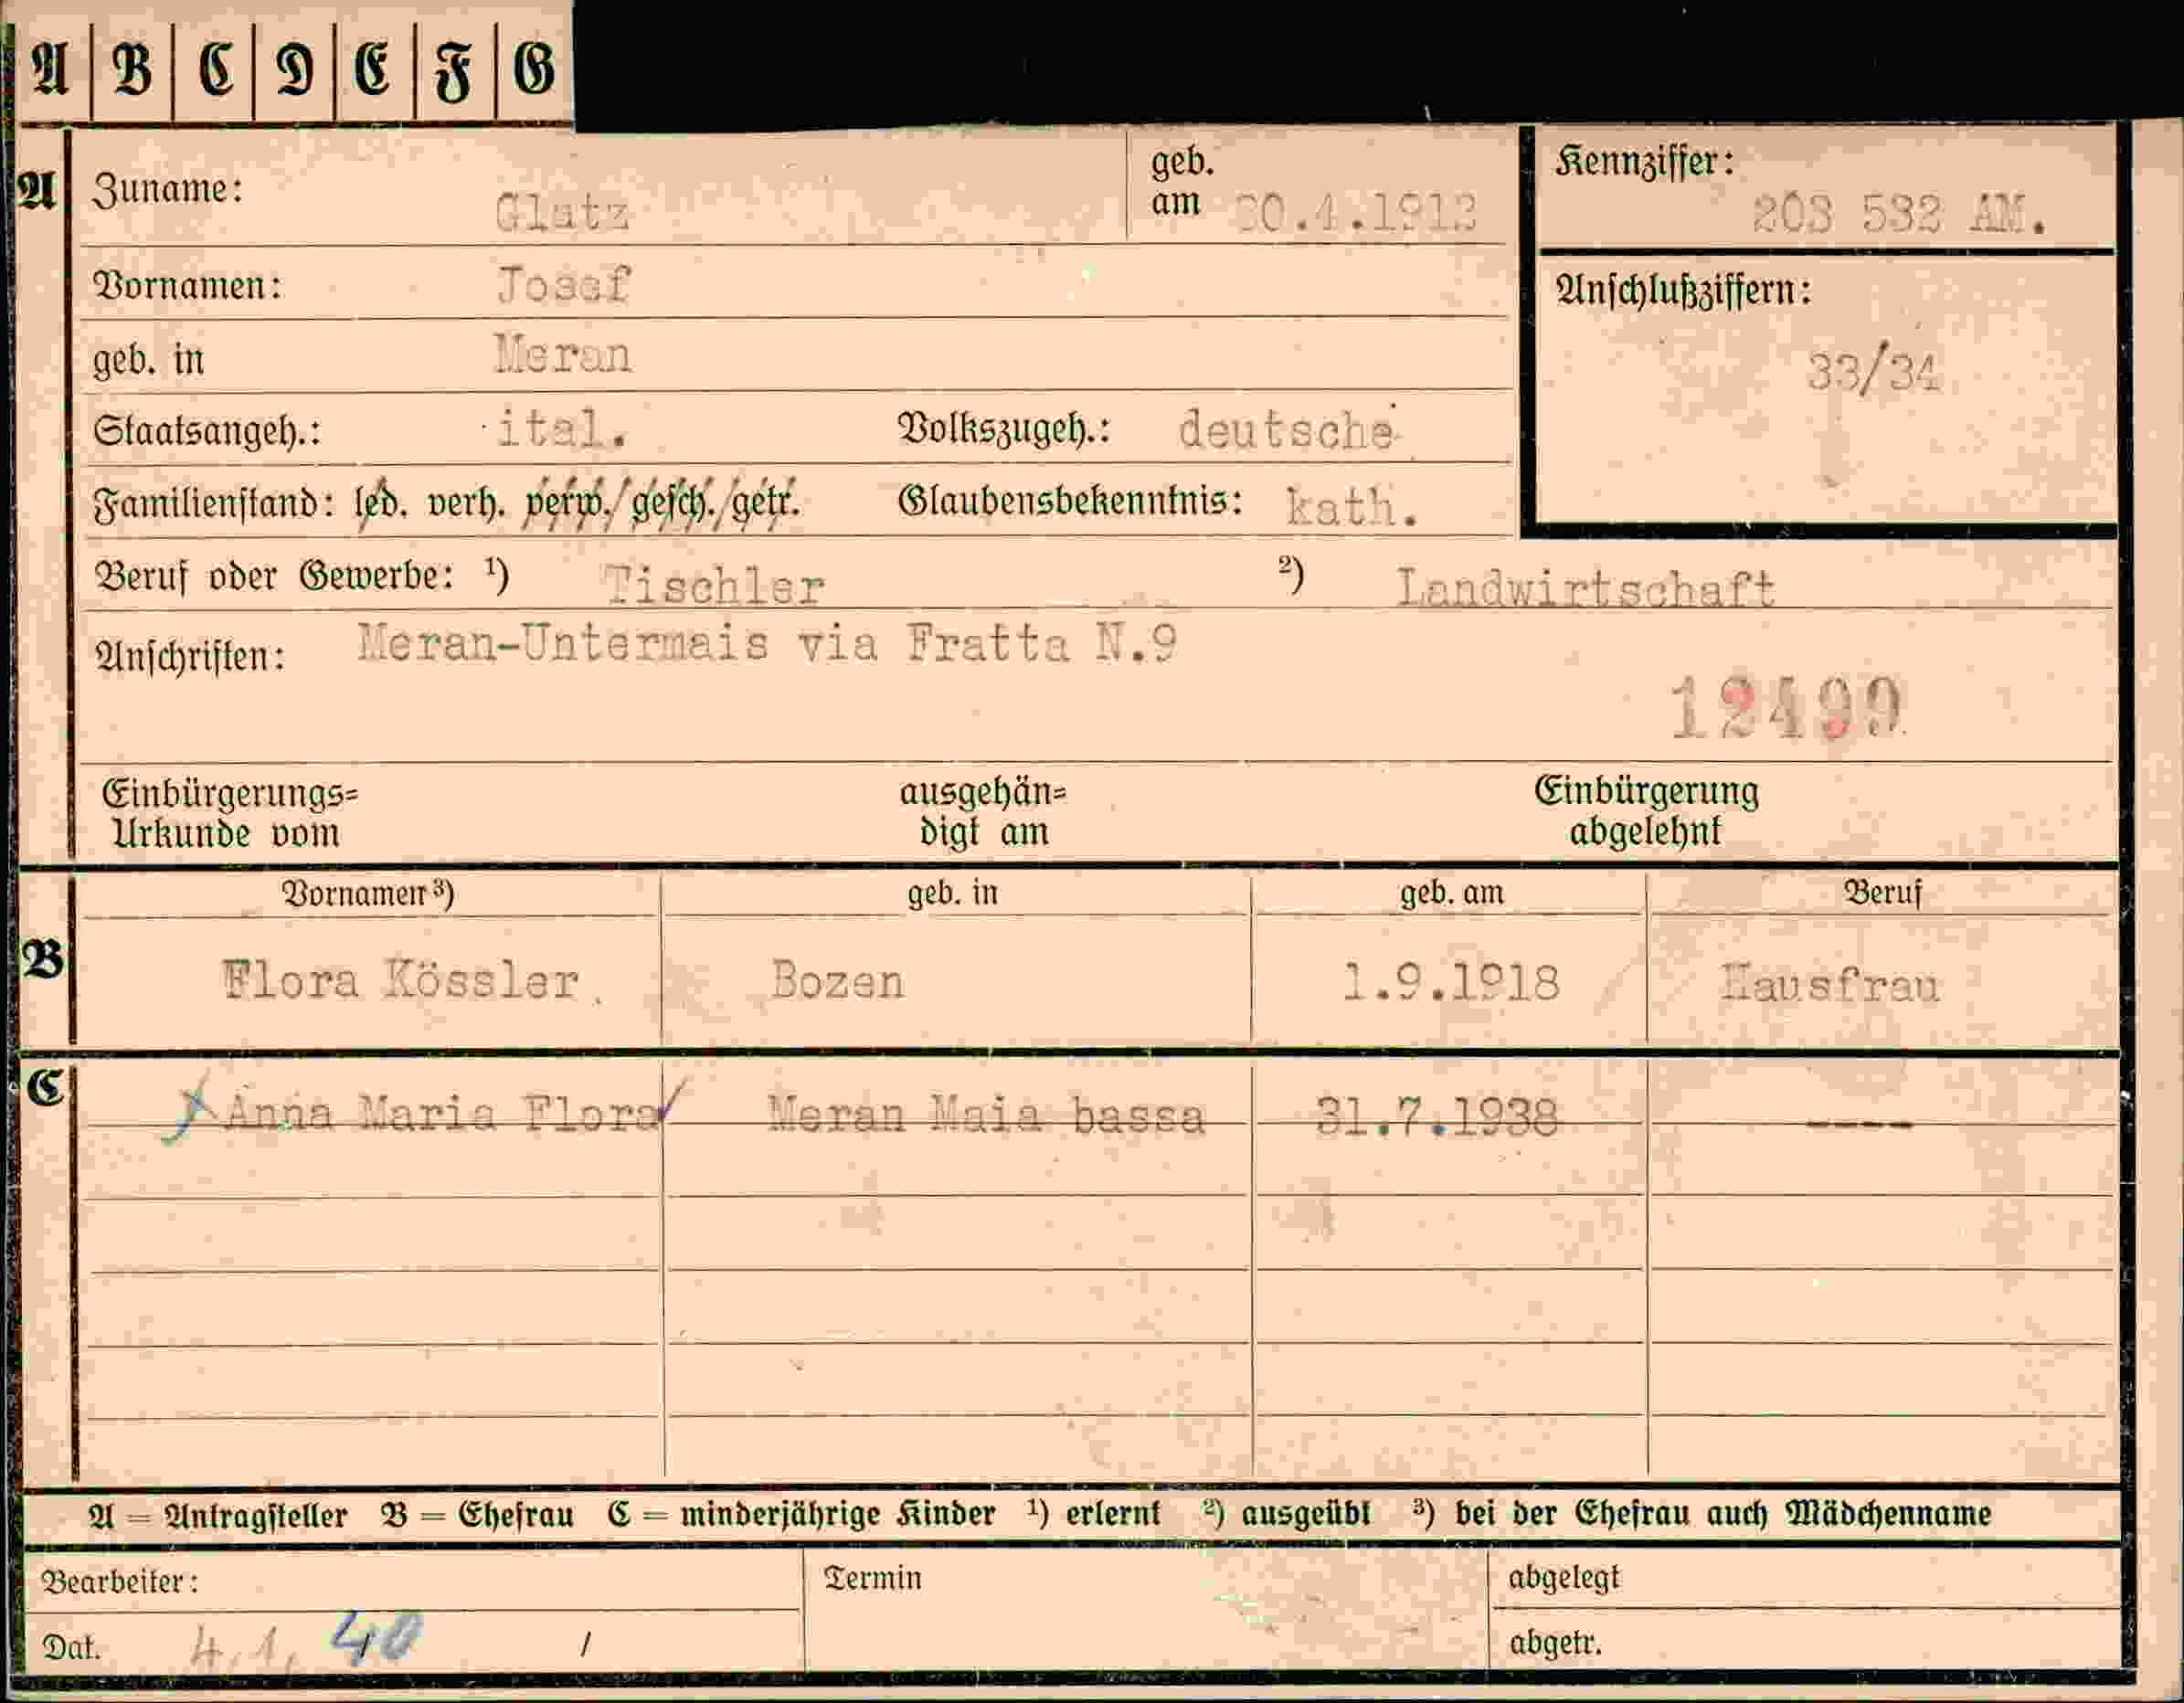 A B C D E F G
A Zuname: Glatz geb. am 30.4.1913 Kennziffer: 203 532 AM.
Vornamen: Josef Anschlußziffern:
geb. in Meran 33/34
Staatsangeh.: ital. Volkszugeh.: deutsche
Familienstand: led. verh. verw./gesch./getr. Glaubensbekenntnis: kath.
Beruf oder Gewerbe: ¹) Tischler ²) Landwirtschaft
Anschriften: Meran-Untermais via Fratta N.9
12499
Einbürgerungs= ausgehän= Einbürgerung
Urkunde vom digt am abgelehnt
Vornamen ³) geb. in geb. am Beruf
B Flora Kössler. Bozen 1.9.1918 Hausfrau
C Anna Maria Flora Meran Maia bassa 31.7.1938 ----
A = Antragsteller B = Ehefrau C = minderjährige Kinder ¹) erlernt ²) ausgeübt ³) bei der Ehefrau auch Mädchenname
Bearbeiter: Termin abgelegt
Dat. 4.1.40 / abgetr.